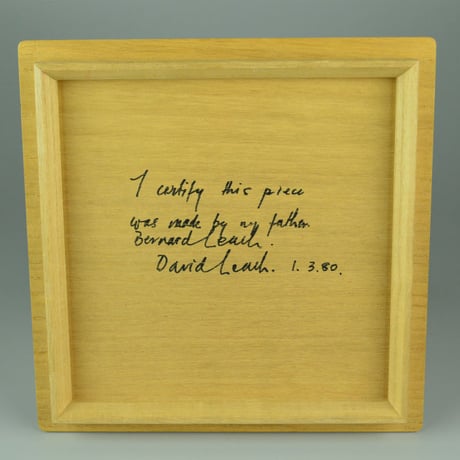 I certify this piece
was made by my father.
Bernard Leach.
David Leach. 1. 3. 80.